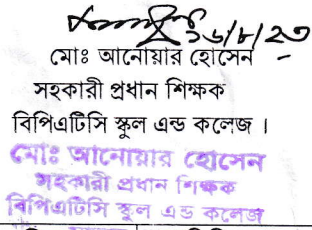 ১৬/৮/২৩
মোঃ আনোয়ার হোসেন
সহকারী প্রধান শিক্ষক
বিপিএটিসি স্কুল এন্ড কলেজ ।
মোঃ আনোয়ার হোসেন
সহকারী প্রধান শিক্ষক
বিপিএটিসি স্কুল এন্ড কলেজ